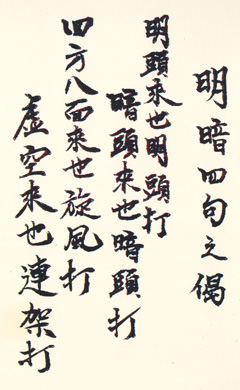 明暗四句之偈
明頭来也明頭打
暗頭来也暗頭打
四方八面来也旋風打
虚空来也連架打